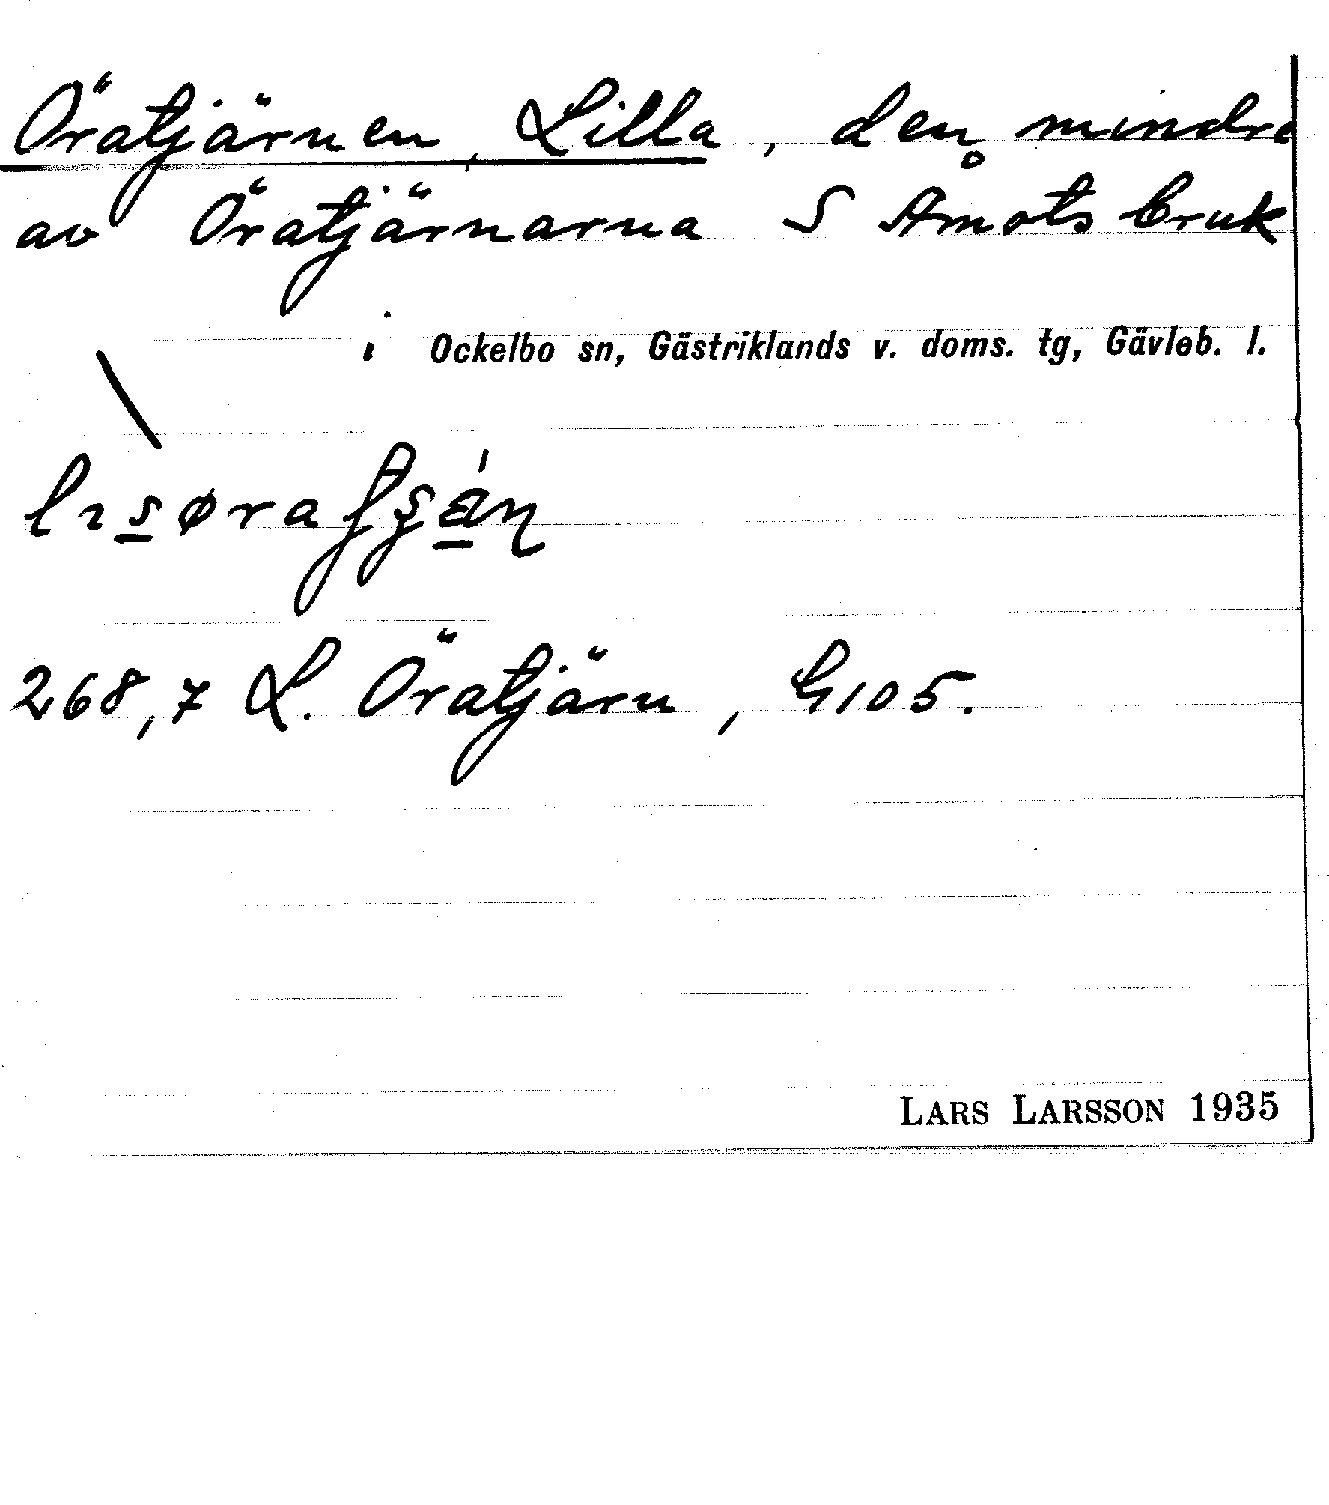 Örätjärnen, Lilla, den mindre
av Örätjärnarna S Åmots bruk
i Ockelbo sn, Gästriklands v. doms. tg, Gävleb. l.
268,7 L. Örätjärn, G105.
LARS LARSSON 1935